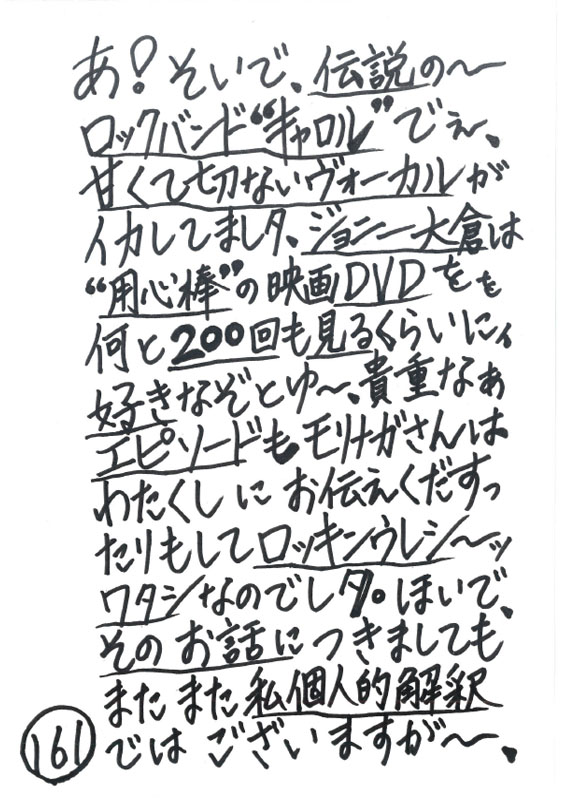 あ!そいで、伝説の〜
ロックバンド“キャロル”でぇ、
甘くて切ないヴォーカルが
イカしてましタ、ジョニー大倉は
“用心棒”の映画DVDをを
何と200回も見るくらいにィ
好きなぞとゆ〜、貴重なぁ
エピソードも、モリナガさんは
わたくしにお伝えくだすっ
たりもしてロッキンウレシ〜ッ
ワタシなのでしタ。ほいで、
そのお話につきましても
またまた私個人的解釈
ではございますが〜、
161